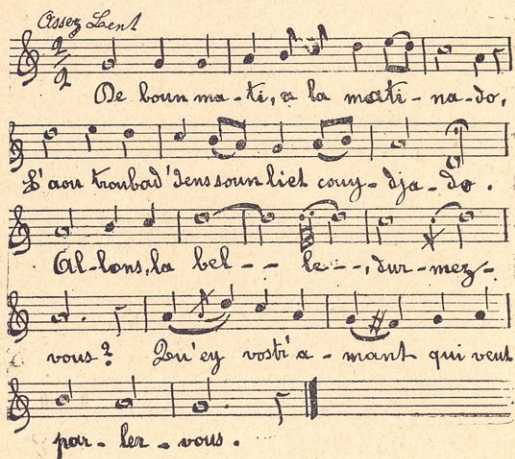 Assez Lent
2
2
De boun ma - ti, a la mati - na - do,
L'aou troubad' dens soun liet couy - dja - do.
Al - lons, la bel - - le - -, dur - mez -
vous? Qu'ey vostr'a - mant qui veut
par - ler - vous.